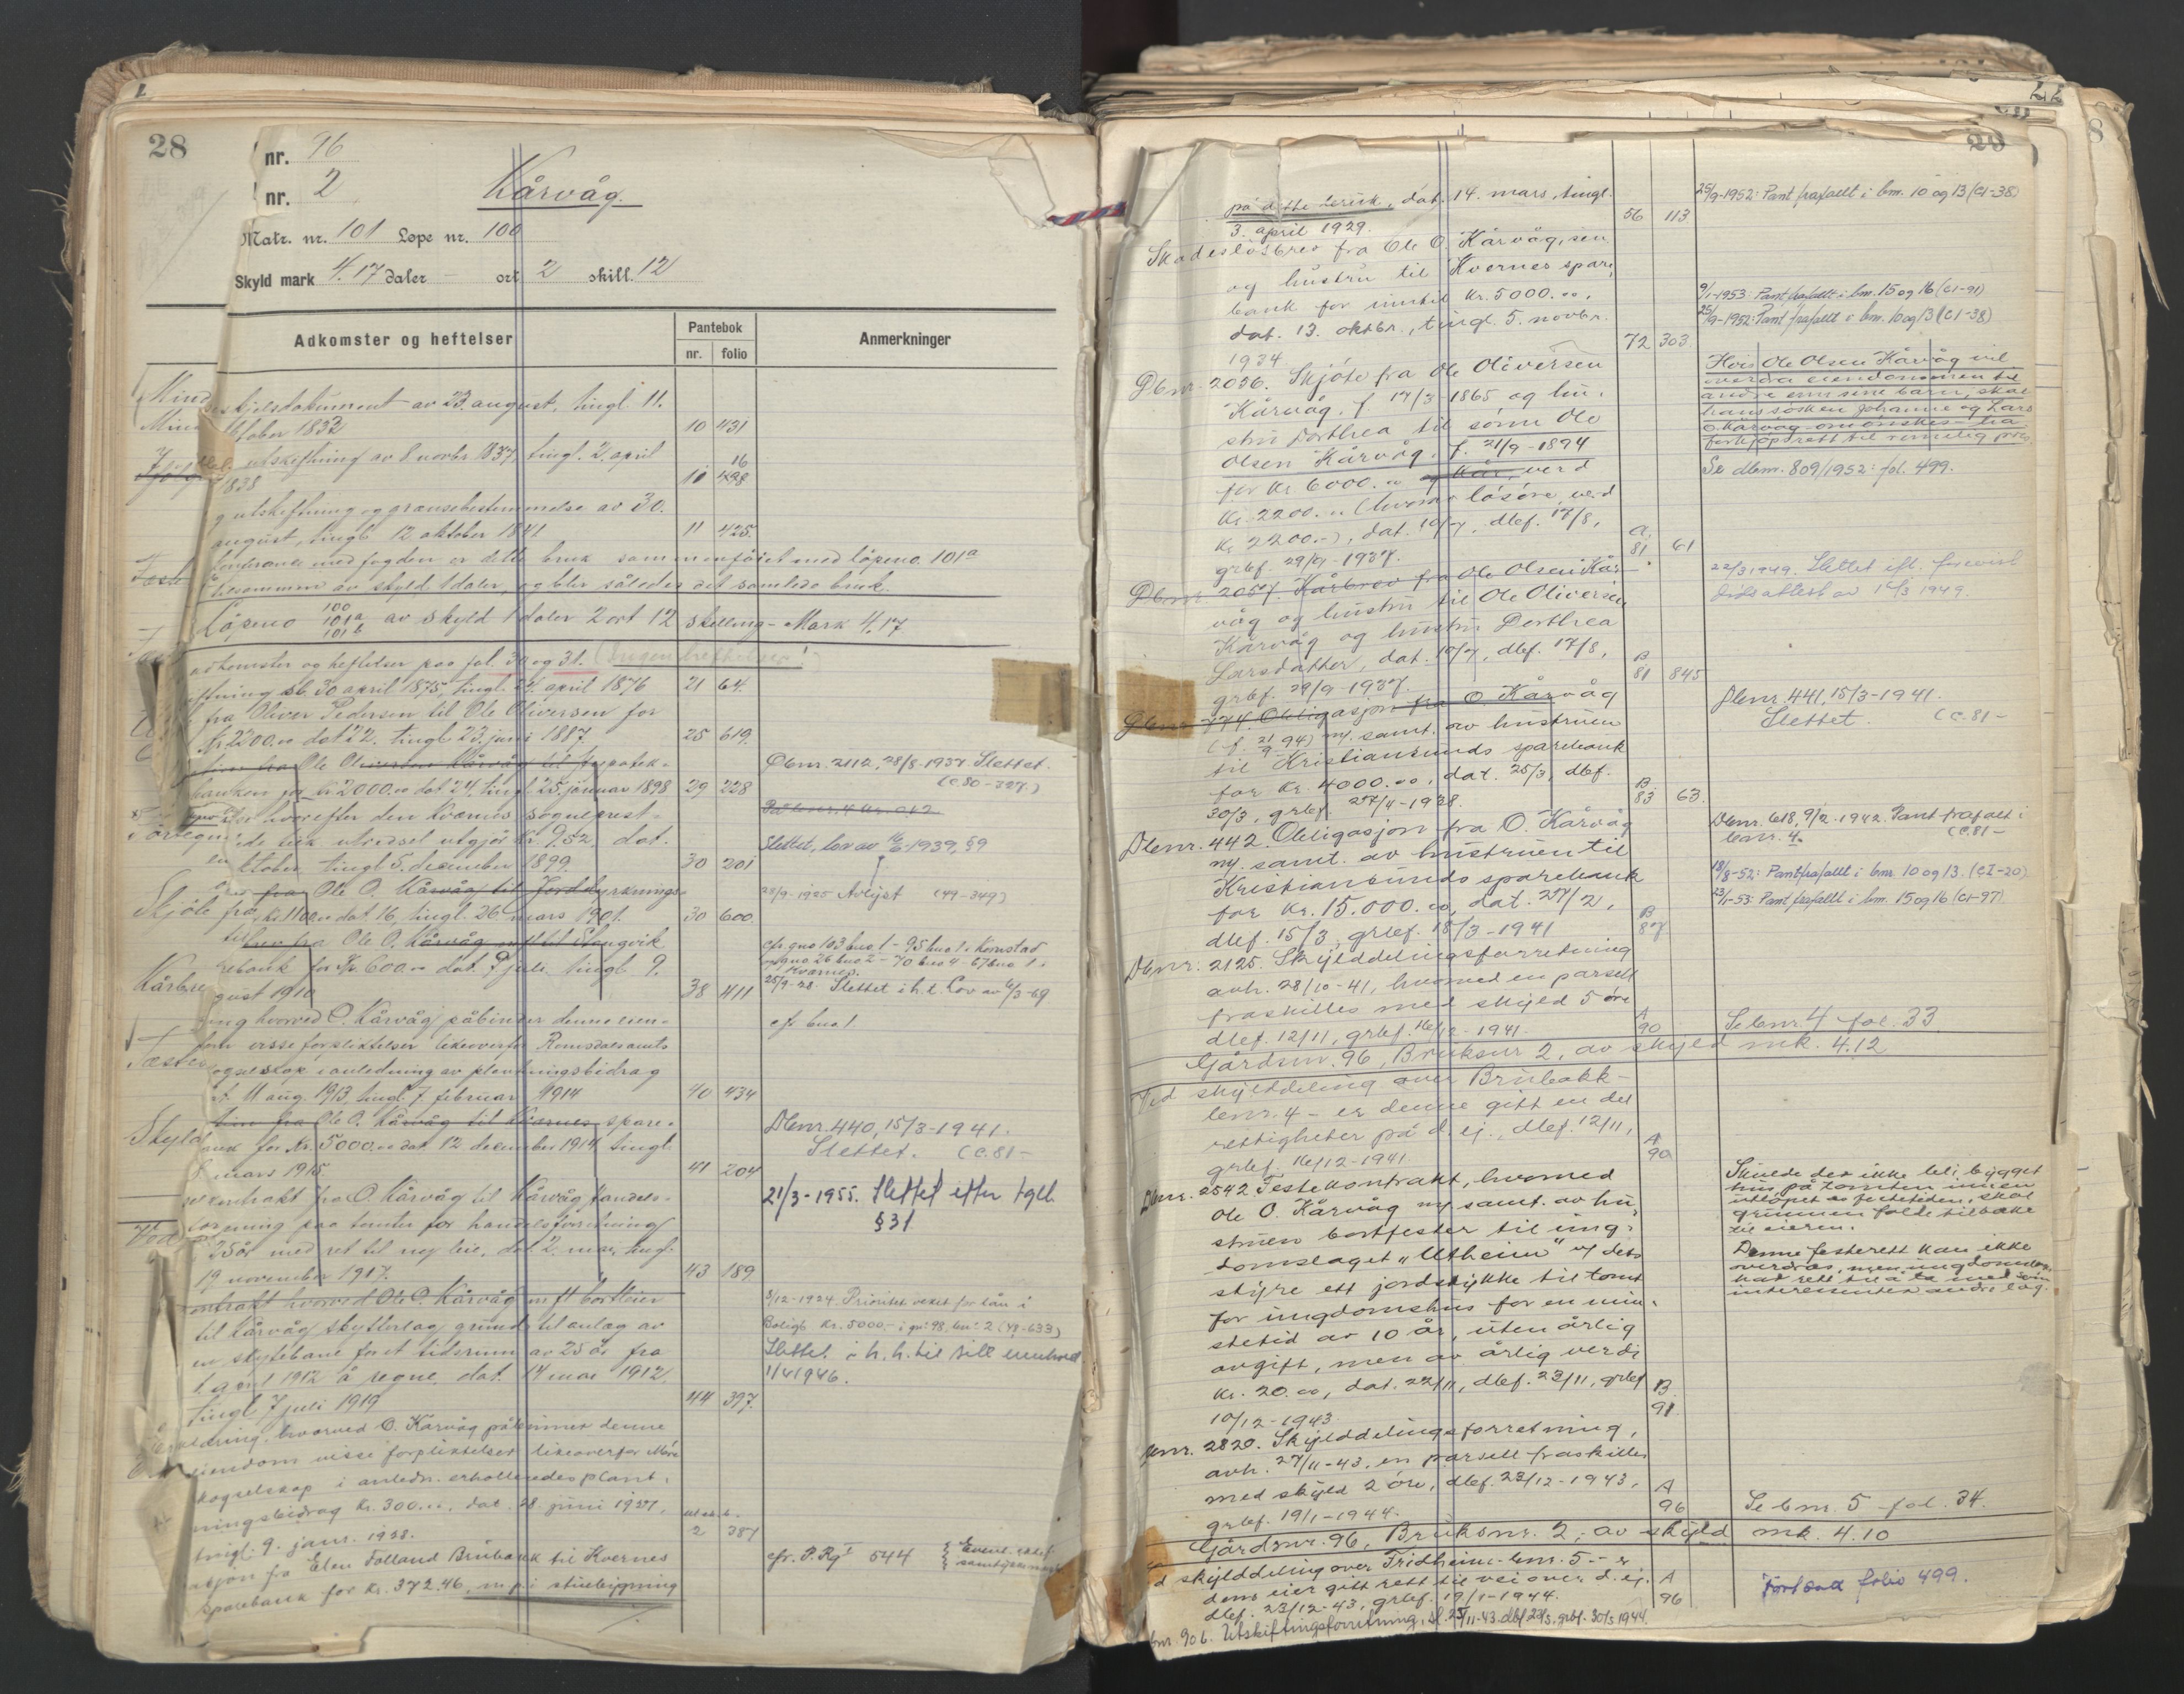 28
nr. 96
nr. 2
Kårvåg.
Matr. nr. 101 Løpe nr. 100
Skyld mark 4.17 daler - ort 2 skill. 12
Adkomster og heftelser
Pantebok
nr. folio
Anmerkninger
skjelsdokument av 23. august, tingl. 11.
oktober 1832 10 431
utskiftning av 8 novbr 1837, tingl. 2 april
1838 11 498 16
g utskiftning og grænsebestemmelse av 30.
august, tingl. 12 oktober 1841 11 425.
konferance med fogden er dette bruk sammenføiet med løpeno. 101a
tilsammen av skyld 1 daler, og blir således det samlede bruk.
Løpeno 100 101a 101b av skyld 1 daler 2 ort 12 skilling - Mark 4,17
adkomster og heftelser paa fol. 30 og 31. (Ingen heftelser!)
utskiftning sl. 30 april 1875, tingl. 24. april 1876 21 64.
fra Oliver Pedersen til Ole Oliversen for
Kr. 2200.00 dat 22. tingl 23. juni 1887. 25 619.
fra Ole Oliversen Kårvåg til hypotek-
banken for kr 2000.00 dat 24, tingl 25. januar 1898 29 228
Dbnr. 2112, 28/8 1937 Slettet.
(C.80-327.)
hvorefter den Kvernes sogneprest-
utgjør kr. 9.52, dat.
oktober, tingl 5. december 1899. 30 201
Slettet, lov av 16/6-1939, §9
fra Ole O. Kårvåg til Jorddyrknings-
kr. 1100.00 dat 16, tingl. 26. mars 1901. 30 600.
28/9-1925 Avlyst (49-349)
fra Ole O. Kårvåg m.fl. til Stangvik
rebank for Kr. 600.00 dat. 9 juli, tingl. 9.
gust 1910 38 411
cfr gno 103 bno 1 - 95 bno 1. Kornstad
gno 26 bno 2 - 70 bno 4 - 67 bno 1.
Kvernes.
25/9-28. Slettet i h.t. Lov av
ing hvorved O. Kårvåg påbinder denne eien-
dom visse forpliktelser likeoverfor Romsdals amts
skogselskap i anledning av plantningsbidrag
dat. 11 aug. 1913, tingl. 7. februar 1914 40 434
cfr bno 1
fra Ole O. Kårvåg til Kvernes spare-
bank for kr. 5000.00 dat. 12 december 1914 tingl.
8. mars 1915. 41 204
Dbnr. 440, 15/3-1941.
Slettet. (C.81-
kontrakt fra O. Kårvåg til Kårvåg handels-
forening paa tomter for handelsforretning
25 år med ret til ny leie, dat 2. mai, tingl.
19 november 1917. 43 189
21/3-1955. Slettet efter tgl.
§31
kontrakt hvorved Ole O. Kårvåg m.fl. bortleier
til Kårvåg skytterlag grund til anlag av
en skytebane for et tidsrum av 25 år fra
1. april 1912 å regne, dat. 14 mai 1912,
tingl. 7 juli 1919 44 397.
3/12-1924. Prioritet veket for lån i
Boligb. kr. 5000.- i gn: 98, bn: 2 (48-633)
Slettet i h. h. til
1/4 1946.
Erklæring, hvorved O. Kårvåg påbinner denne
eiendom visse forpliktelser likeoverfor Møre
skogselskap i anledn. erholdendes plant-
ningsbidrag kr. 300.00, dat. 28. juni 1927,
tingl. 9. janr. 1928. 2 381
asjon fra Elen Folland Brubakk til Kvernes
sparebank for kr. 372.46, m.p. i stuebygning
cfr. P. Rgt 544
29
på dette bruk, dat. 14. mars, tingl.
3. april 1929. 56 113
25/9-1952: Pant frafallt i bnr. 10 og 13 (C1-38)
Skadesløsbrev fra Ole O. Kårvåg, sen.
og hustru til Kvernes spare-
bank for inntil kr. 5000.00,
dat. 13. oktbr., tingl. 5. novbr.
1934 72 303.
9/1-1953: Pant frafallt i bnr. 15 og 16 (C1-91)
25/9-1952: Pant frafallt i bnr. 10 og 13 (C1-38)
Dbnr. 2056. Skjøte fra Ole Oliversen
Kårvåg, f. 17/3 1865 og hu-
stru Dorthea til sønn Ole
Olsen Kårvåg, f. 21/9-1894
for kr 6000.00 og kår, verd
kr. 2200.00 (hvorav løsøre verd
kr. 2200.-), dat. 10/7, dbf. 17/8,
grbf. 29/9-1937. A. 81 61
Hvis Ole Olsen Kårvåg vil
overdra eiendommen til
andre enn sine barn, skal
hans søsken Johanne og Lars
O. Kårvåg - om ønskes - ha
forkjøpsrett til rimelig pris.
Se dbnr. 809/1952: fol. 499.
Dbnr 2057. Kårbrev fra Ole Olsen Kår-
våg og hustru til Ole Oliversen
Kårvåg og hustru Dorthea
Larsdatter, dat. 10/7, dbf. 17/8,
grbf. 29/9-1937. B 81 845
22/3 1949. Slettet ifl. forevist
dødsattest av 1949.
Dbnr 774. Obligasjon fra O. Kårvåg
(f. 21/9 94) m/ samt. av hustruen
til Kristiansunds sparebank
for kr. 4000.00, dat. 25/3, dbf.
30/3, grbf. 27/4-1938. B 83 63.
Dbnr. 441, 15/3-1941.
Slettet. (C.81-
Dbnr. 442. Obligasjon fra O. Kårvåg
m/ samt. av hustruen til
Kristiansunds sparebank
for kr. 15.000.00, dat. 27/2,
dbf. 15/3, grbf. 18/3-1941 B 87
Dbnr. 618, 9/2-1942. Pant frafalt i
bnr. 4. (C.81-
18/8-52: Pant frafallt i bnr. 10 og 13. (C1-20)
23/1-53: Pant frafallt i bnr. 15 og 16 (C1-97)
Dbnr. 2125. Skylddelingsforretning
avh. 28/10-41, hvorved en parsell
fraskilles med skyld 5 øre
dbf. 12/11, grbf. 16/12-1941. A 90
Se bnr. 4 fol. 33
Gårdsnr. 96, Bruksnr 2, av skyld mk. 4.12
Ved skylddeling over Brubakk -
bnr. 4 - er denne gitt en del
rettigheter på d. ej., dbf. 12/11,
grbf. 16/12-1941. A 90
Dbnr. 2542 Festekontrakt, hvorved
Ole O. Kårvåg m/ samt. av hu-
struen bortfester til ung-
domslaget „Utheim" v/ dets
styre ett jordstykke til tomt
for ungdomshus for en min-
stetid av 10 år, uten årlig
avgift, men av årlig verdi
kr. 20.00, dat. 22/11, dbf. 23/11, grbf
10/12-1943. B. 91
Skulde det ikke bli bygget
hus på tomten innen
utløpet av festetiden, skal
grunnen falde tilbake
til eieren.
Denne festerett kan ikke
overdras, men ungdomslag.
had rett til å ta med som
interessenter andre lag.
Dbnr. 2820. Skylddelingsforretning,
avh. 27/11-43, en parsell fraskilles
med skyld 2 øre, dbf. 23/12-1943,
grbf. 19/1-1944. A 96
Se bnr. 5 fol. 34.
Gårdsnr. 96, Bruksnr. 2, av skyld mk. 4.10
Ved skylddeling over Fridheim - bnr. 5 - er
dens eier gitt rett til vei over d. ej.
dbf. 23/12-43, grbf. 19/1-1944. A 96
Forts. på folio 499.
bnr. 906. Utskiftingsforretning, sl. 25/11-43. dbf 23/5, grbf. 30/5 1944.